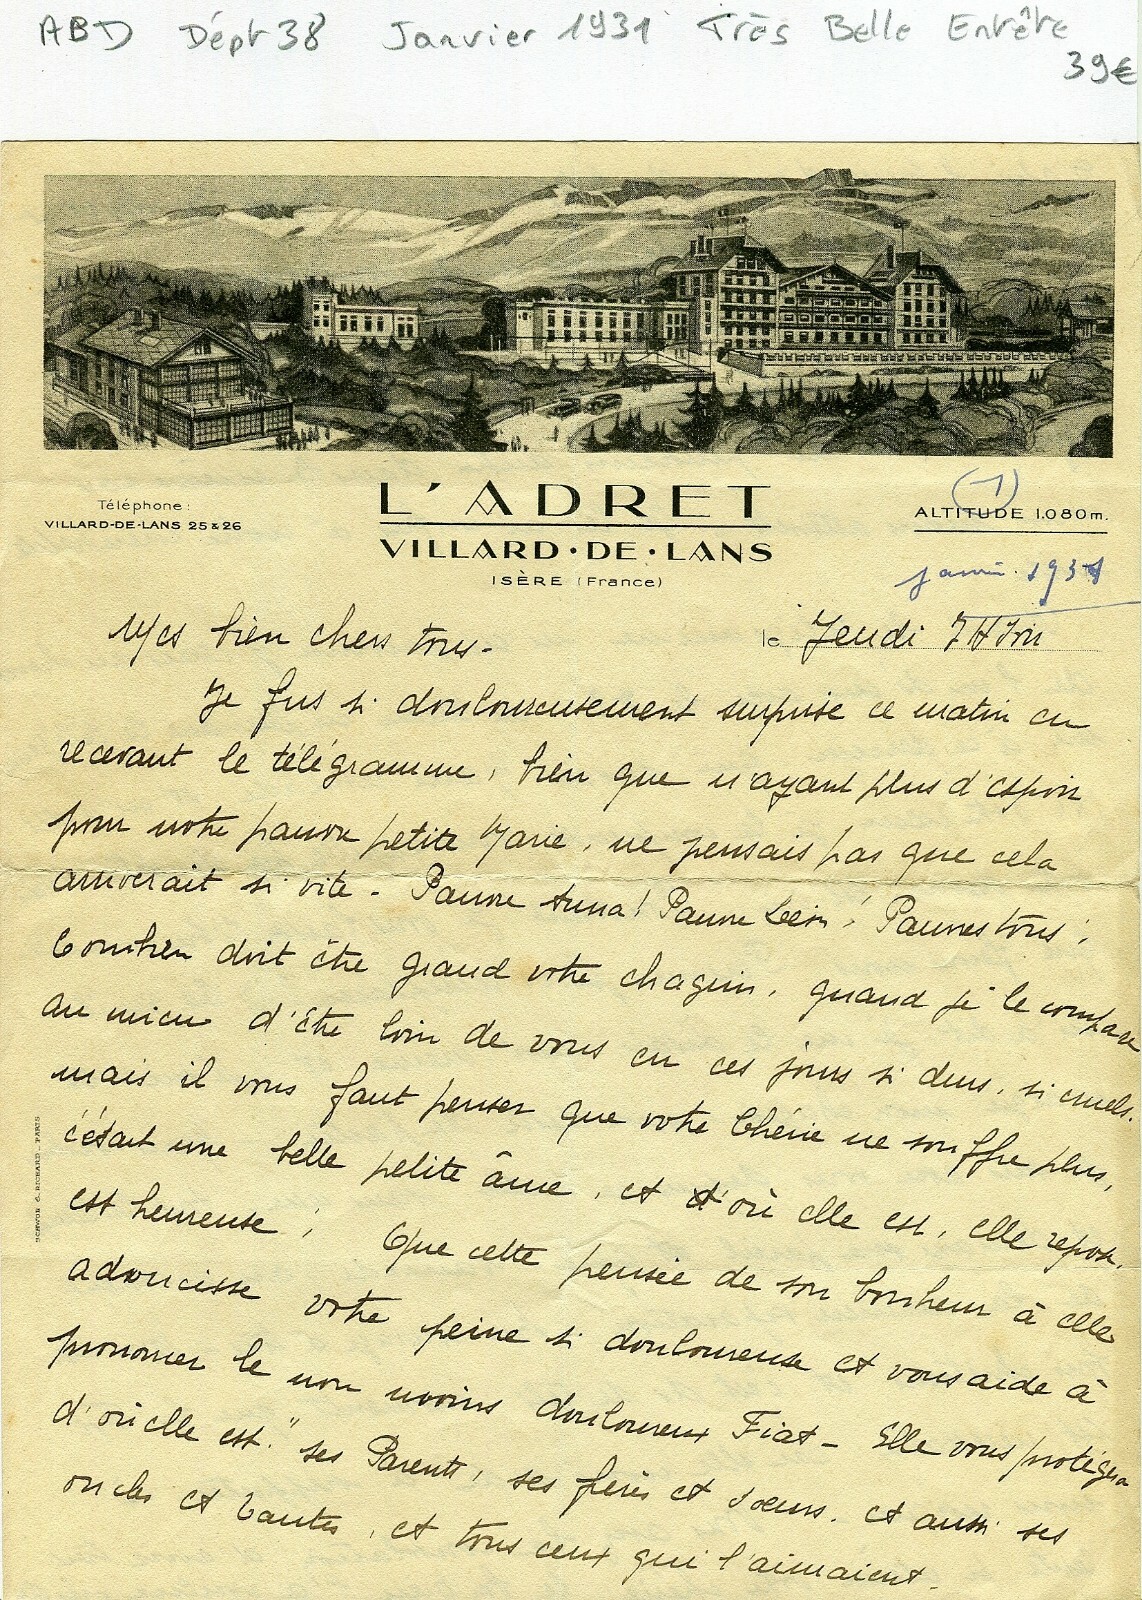 ABD Dépt 38 Janvier 1931 Très Belle Entête
39€
Téléphone :
VILLARD-DE-LANS 25 & 26
L'ADRET
VILLARD·DE·LANS
ISÈRE (France)
(1)
ALTITUDE 1.080m.
janvi. 1931
le Jeudi 7H
Mes bien chers tous -
Je fus si douloureusement surprise ce matin en
recevant le télégramme, bien que n'ayant plus d'espoir
pour notre pauvre petite Marie, ne pensais pas que cela
arriverait si vite - Pauvre Anna! Pauvre Léon! Pauvres tous!
Combien doit être grand votre chagrin, quand je le compare
au mien d'être loin de vous en ces jours si durs, si cruels.
mais il vous faut penser que votre Chérie ne souffre plus,
c'était une belle petite âme, et d'où elle est, elle repose,
est heureuse! Que cette pensée de son bonheur à elle
adoucisse votre peine si douloureuse et vous aide à
prononcer le non moins douloureux Fiat - Elle vous protégera
d'où elle est." ses Parents, ses frères et soeurs, et aussi ses
oncles et tantes, et tous ceux qui l'aimaient -
SCHWOB & RICHARD - PARIS